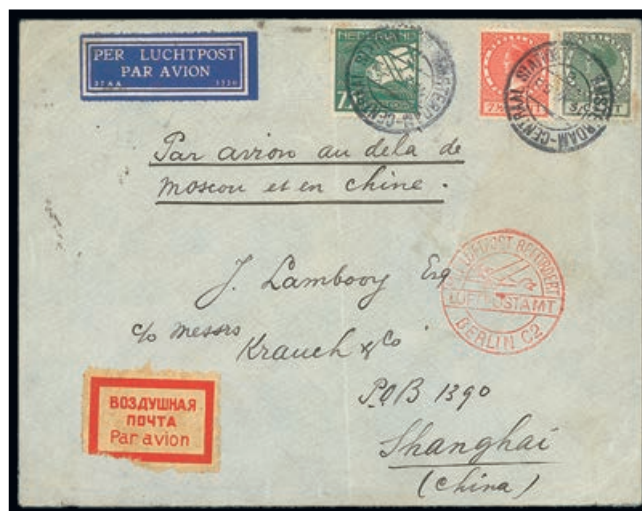 PER LUCHTPOST
PAR AVION
NEDERLAND
7½
AMSTERDAM-CENTRAAL STATION
7½
AMSTERDAM-CENTRAAL
Par avion au dela de
Moscou et en chine.
J. Lambooy Esq
c/o Messrs
Krauch & Co
P.O.B 1390
Shanghai
(China)
MIT LUFTPOST BEFÖRDERT
LUFTPOSTAMT
BERLIN C2
ВОЗДУШНАЯ
ПОЧТА
Par avion